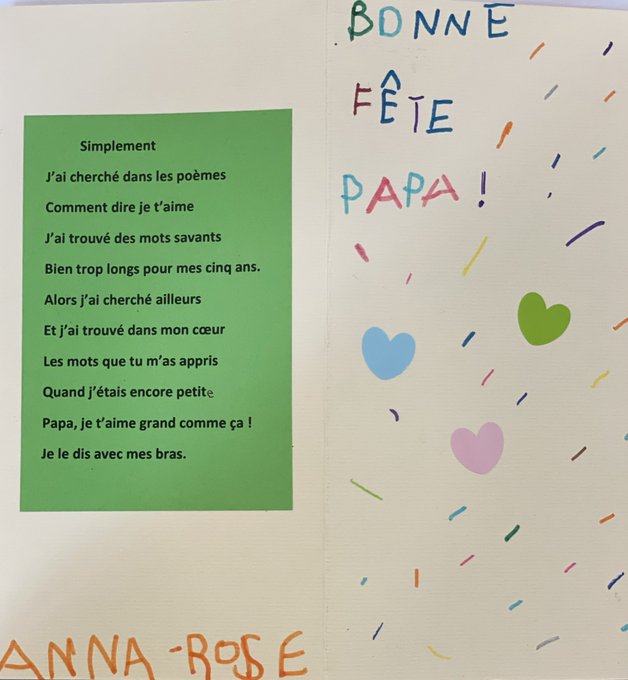 Simplement
J'ai cherché dans les poèmes
Comment dire je t'aime
J'ai trouvé des mots savants
Bien trop longs pour mes cinq ans.
Alors j'ai cherché ailleurs
Et j'ai trouvé dans mon cœur
Les mots que tu m'as appris
Quand j'étais encore petite
Papa, je t'aime grand comme ça !
Je le dis avec mes bras.
ANNA-ROSE
BONNE
FÊTE
PAPA !